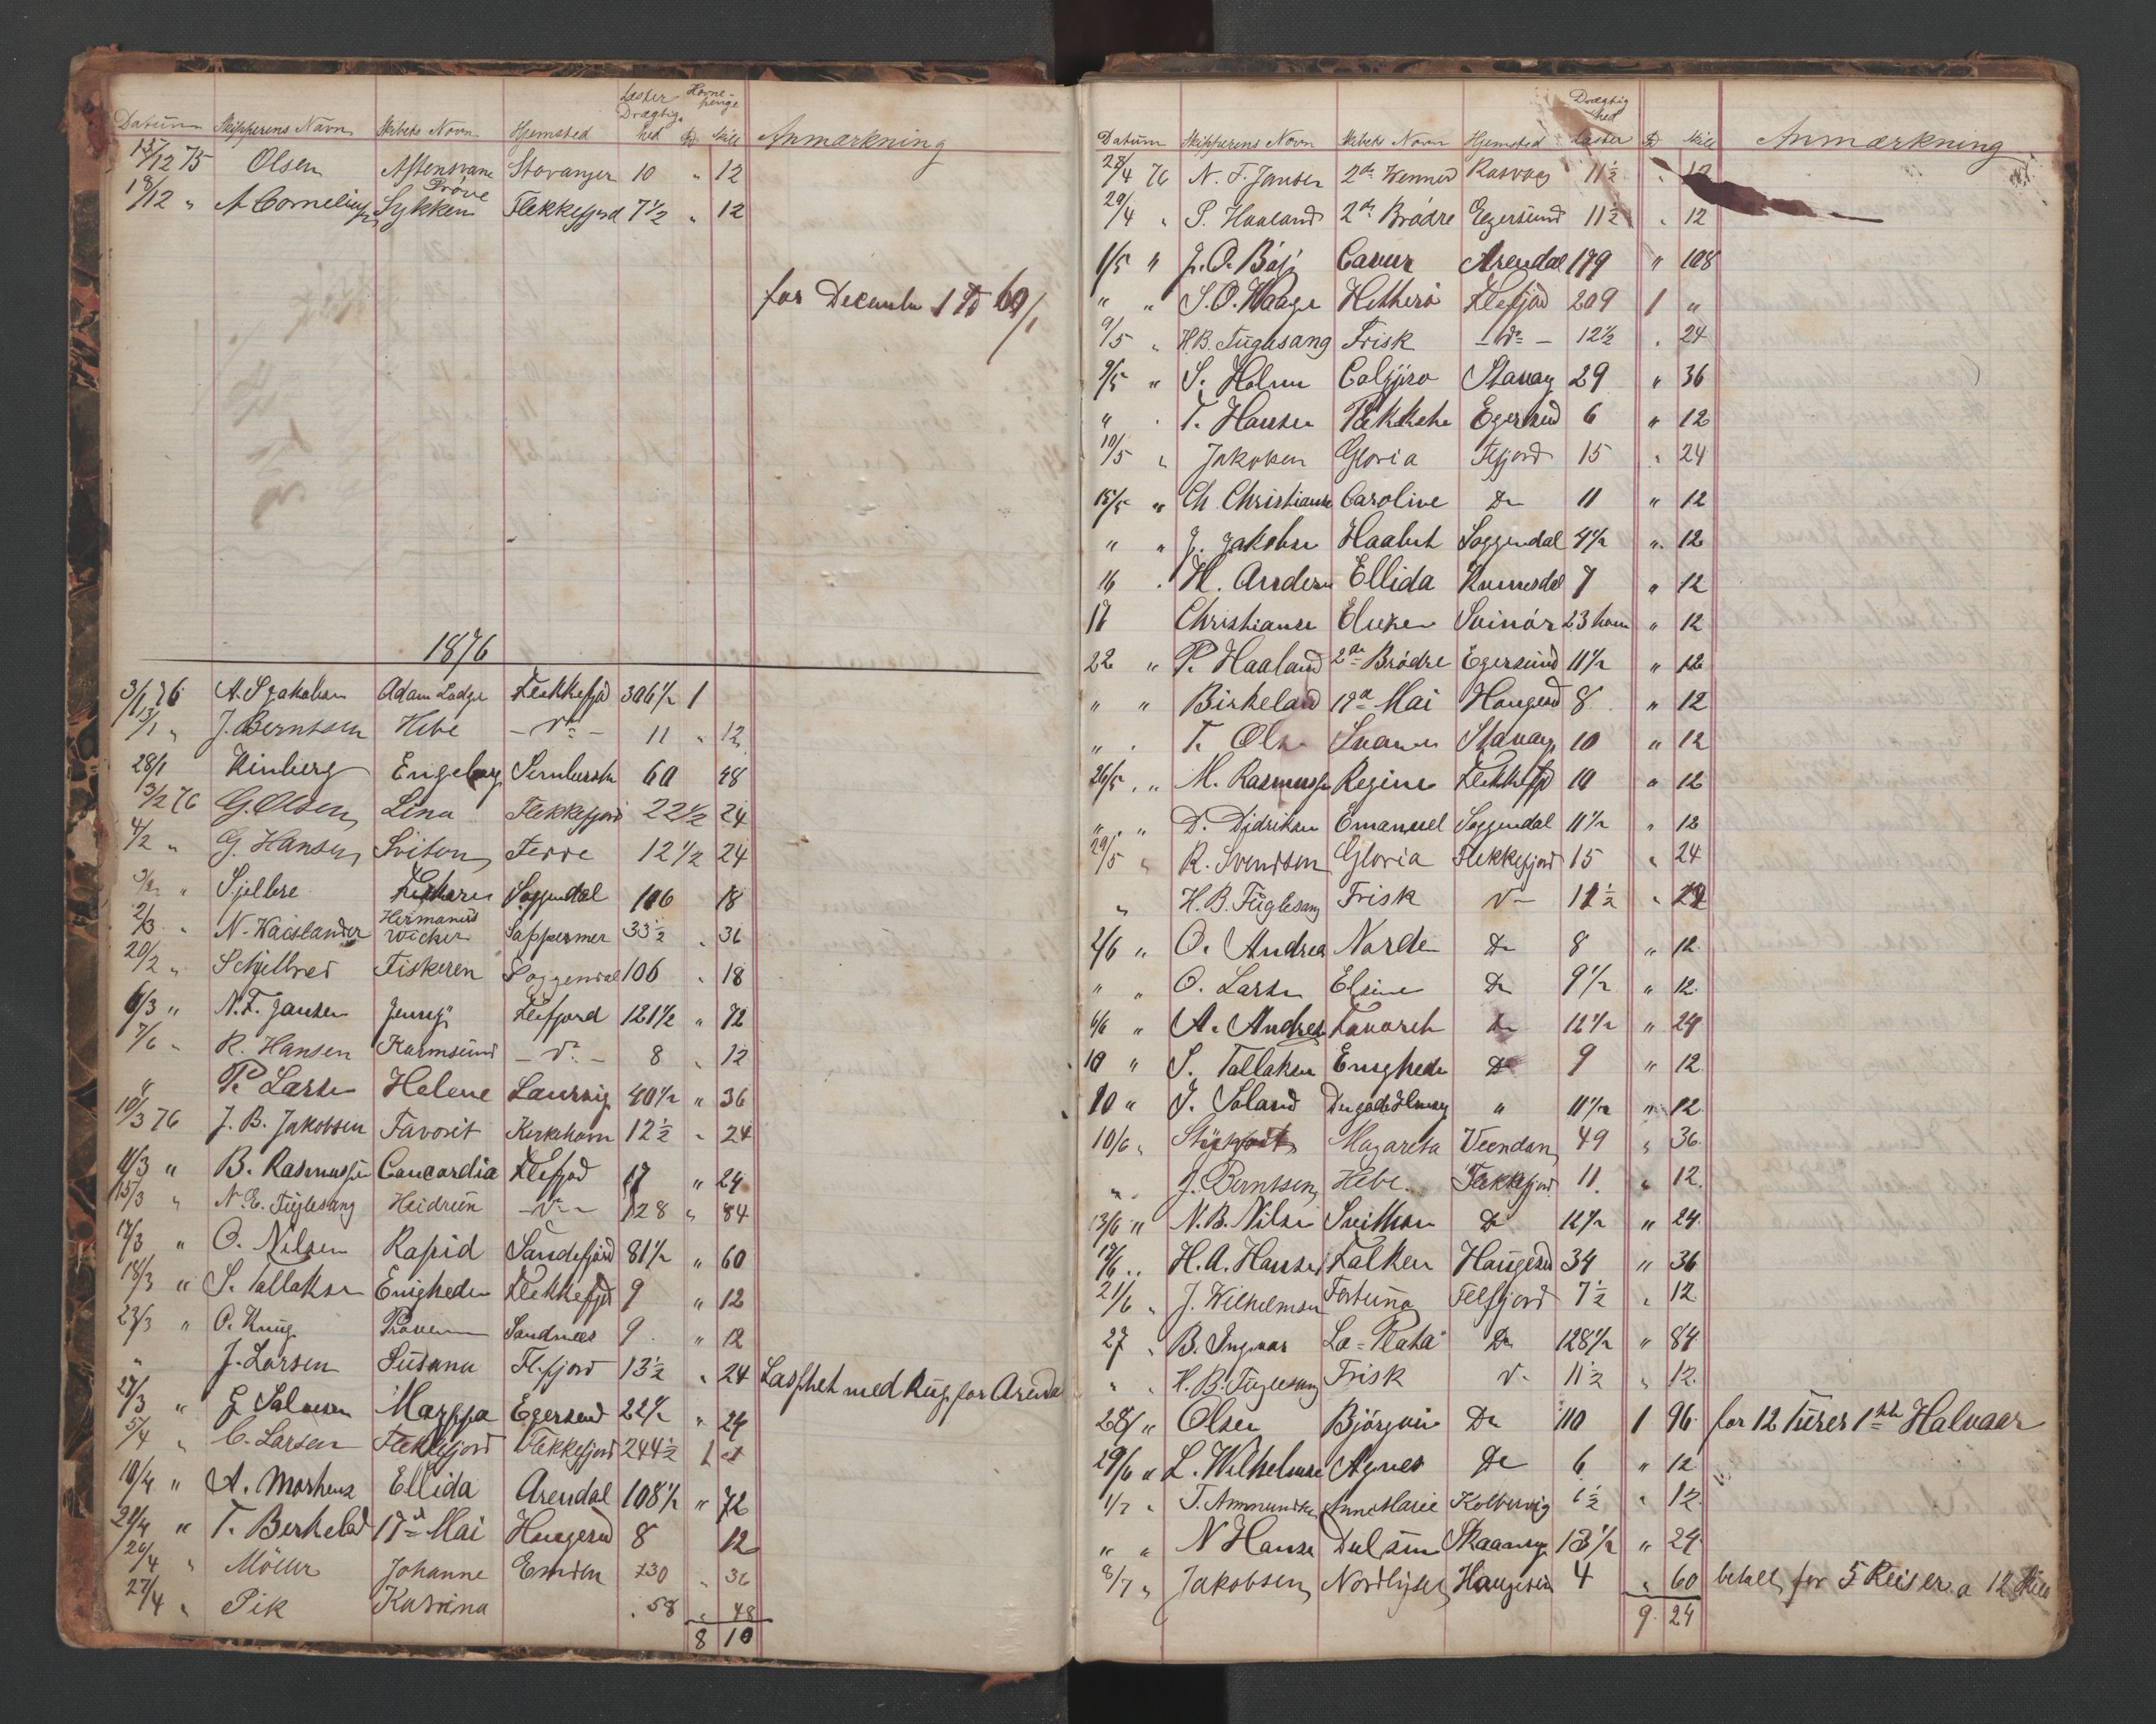 Datum Skipperens Navn Skibets Navn Hjemsted Læster Drægtighed Havnepenge Skill Anmærkning
15/12 75 Olsen Aftensvane Stavanger 10 " 12
18/12 " A Corneliusen Prøve Lykken Flekkefjord 7 1/2 " 12
for Decembr 1
1876
3/1 76 A. S Jakobsen Adam Lodge Flekkefjd 306 1/2 1
13/1 " J. Berntsen Hebe - do - 11 " 12
28/1 Kinberg Engeborg 60 48
13/2 76 G. Olsen Lina Flekkefjord 22 1/2 24
4/2 " G. Hansen Sviton Ferre 12 1/2 24
" Sjelbre Soggendal 106 18
2/3 " N. Kaislander Hermanus Wicker Sappermer 33 1/2 " 36
20/2 " Schjelbred Fiskeren Soggendal 106 " 18
6/3 " N. F. Jansen Jenny Flefjord 121 1/2 " 72
7/6 " R. Hansen Karmsund - do - 8 " 12
" P. Larsen Helene Laurvig 40 1/2 " 36
10/3 76 J. B. Jakobsen Favorit Kirkehavn 12 1/2 " 24
11/3 " B. Rasmussen Concordia Flefjod 17 " 24
15/3 " N. E. Fuglesang Heidrun - do - 128 " 84
17/3 " O. Nilsen Rapid Sandefjord 81 1/2 " 60
18/3 " S. Tallaksen Enigheden Flekkefjd 9 " 12
23/3 " O. Krug Prøven Sandnæs 9 " 12
" J. Larsen Susana Fl.fjord 13 1/2 " 24 Lasthet med Rug for Arendal
27/3 " J Salvesen Marppa Egersund 22 1/2 " 24
5/4 " C. Larsen Flekkefjord Flekkefjord 244 1/2 1
10/4 " A. Morthens Ellida Arendal 108 1/2 " 72
21/4 " T. Berkelad 17d Mai Haugesud 8 12
26/4 " Möller Johanne Emden 730 " 36
27/4 " Pik Katrina " 58 " 48
8 10
Datum Skipperens Navn Skibets Navn Hjemsted Drægtighed Læster Skill Anmærkning
28/4 76 N. F. Jansen 2de Venner Rasvag 11 1/2 " 12
29/4 " P. Haaland 2de Brödre Egersund 11 1/2 " 12
1/5 " J. O. Böj Cavur Arendal 179 " 108
" " S. O. Waage Hitherö Flefjod 209 1 "
9/5 " H. B. Fuglesang Frisk - do - 12 1/2 " 24
9/5 " S. Holm Stavag 29 " 36
" " T. Hansen Egersud 6 " 12
10/5 " Jakobsen Gloria Flfjord 15 " 24
15/5 " Ch. Christiansen Caroline Do 11 " 12
" " J. Jakobsen Haabet Soggendal 4 1/2 " 12
16 " H. Andersen Ellida Rumesdal 7 " 12
17 Christiansen Svinör 23 tons " 12
22 " P. Haaland 2de Brödre Egersund 11 1/2 " 12
" " Birkeland 17de Mai Haugesd 8 " 12
" " T. Olsen Svanen Stavag 10 " 12
26/5 " M. Rasmussen Regine Flekkefjd 10 " 12
" " D. Djdriksen Emanuel Soggendal 11 1/2 " 12
29/5 " R. Svendsen Gloria Flekkefjord 15 " 24
" H. B. Fuglesang Frisk do 11 1/2 "
2/6 " O. Andrea Norden Do 8 " 12
" " O. Larsen Elsine Do 9 1/2 " 12
6/6 " A. Andrea Favorit Do 12 1/2 " 24
10 " S. Tallaksen Enigheden Do 9 " 12
10 " J. Soland " 11 1/2 " 12
10/6 " Magareta Veendam 49 " 36
" " J. Berntsen Hebe Flekkefjord 11 " 12
13/6 " N. B. Nilsen Svithun Do 12 1/2 " 24
17/6 " H. A. Hansen Falken Haugesd 34 " 36
21/6 " J. Wilhelmsen Fortuna Flefjord 7 1/2 " 12
27 " B. Ingvar La-Plata Do 128 1/2 " 84
" " H. B. Fuglesang Frisk do 11 1/2 " 12
28/ " Olsen Björgvin Do 110 1 96 for 12 Turer 1ste Halvaar
29/6 " L. Wilhelmsen Agnes Do 6 " 12
1/7 " T. Ammundsen Anne Marie Kolbervig 6 1/2 " 12
" " N Hansen Skaanevig 13 1/2 " 24
8/7 " Jakobsen Nordlyset Haugesun 4 " 60 betalt for 5 Reiser a 12 Skill
9 24